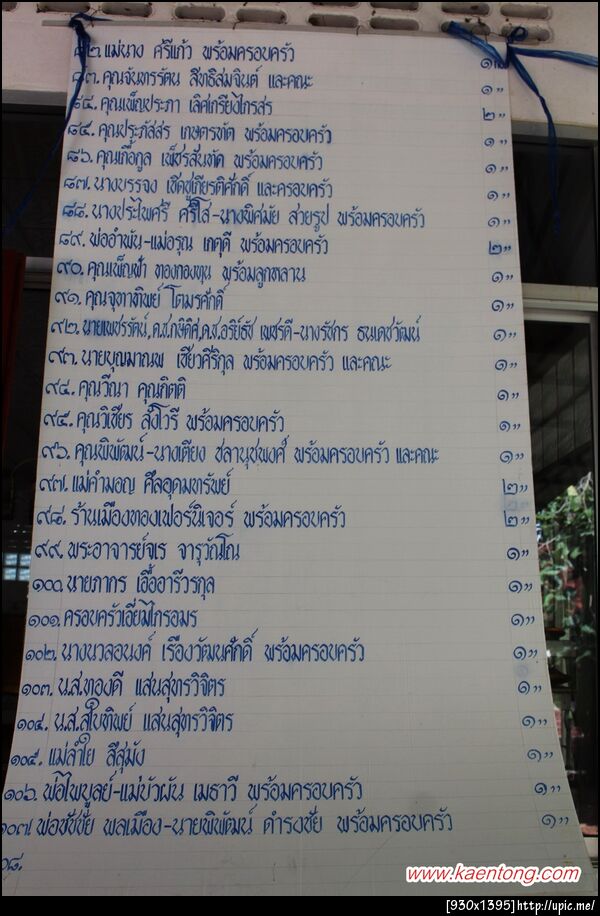 ๘๒. แม่นาง ศรีแก้ว พร้อมครอบครัว ๑"
๘๓. คุณจันทรรัตน สิทธิสมจินต์ และคณะ ๑"
๘๔. คุณเพ็ญประภา เลิศเกรียงไกรสร ๒"
๘๕. คุณประภัสสร เกษตรทัต พร้อมครอบครัว ๑"
๘๖. คุณเกื้อกูล เพ็ชรสันทัด พร้อมครอบครัว ๑"
๘๗. นางบรรจง เชิดชูเกียรติศักดิ์ และครอบครัว ๑"
๘๘. นางประไพศรี ศรีโส-นางพิศมัย สวยรูป พร้อมครอบครัว ๑"
๘๙. พ่ออำพัน-แม่อรุณ เกตุดี พร้อมครอบครัว ๒"
๙๐. คุณเพ็ญฟ้า ทองกองทุน พร้อมลูกหลาน ๑"
๙๑. คุณจุฑาทิพย์ โตมรศักดิ์ ๑"
๙๒. นายเพชรรัตน์,ด.ช.กษิดิศ,ด.ช.อริย์ธัช เพชรดี-นางรัชกร ธนเดชวัฒน์ ๑"
๙๓. นายบุญมาณพ เชี่ยวศิริกุล พร้อมครอบครัว และคณะ ๑"
๙๔. คุณวีณา คุณกิตติ ๑"
๙๕. คุณวิเชียร สังโวรี พร้อมครอบครัว ๑"
๙๖. คุณพิพัฒน์-นางเตียง ชลานุชพงศ์ พร้อมครอบครัว และคณะ ๑"
๙๗. แม่คำมอญ ศีลอุดมทรัพย์ ๒"
๙๘. ร้านเมืองทองเฟอร์นิเจอร์ พร้อมครอบครัว ๒"
๙๙. พระอาจารย์จเร จารุวัณโณ ๑"
๑๐๐. นายภากร เอื้ออารีวรกุล ๑"
๑๐๑. ครอบครัวเอี่ยมไกรอมร ๑"
๑๐๒. นางนวลอนงค์ เรืองวัฒนศักดิ์ พร้อมครอบครัว ๑"
๑๐๓. น.ส.ทองดี แสนสุทรวิจิตร ๑"
๑๐๔. น.ส.สุบทิพย์ แสนสุทรวิจิตร ๑"
๑๐๕. แม่ลำใย สีสุมัง ๑"
๑๐๖. พ่อไพบูลย์-แม่บัวผัน เมธาวี พร้อมครอบครัว ๑"
๑๐๗ พ่อชัชชัย พลเมือง-นายพิพัฒน์ ดำรงชัย พร้อมครอบครัว ๑"
๐๘.
www.kaentong.com
[930x1395]http://upic.me/